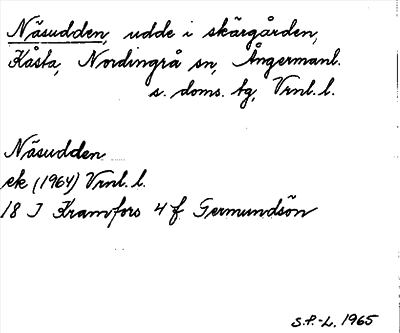 Näsudden, udde i skärgården,
Kåsta, Nordingrå sn, Ångermanl.
s. doms. tg, Vrnl. l.
Näsudden
ek (1964) Vrnl. l.
18 I Kramfors 4 f Germundsön
S.P.-L. 1965